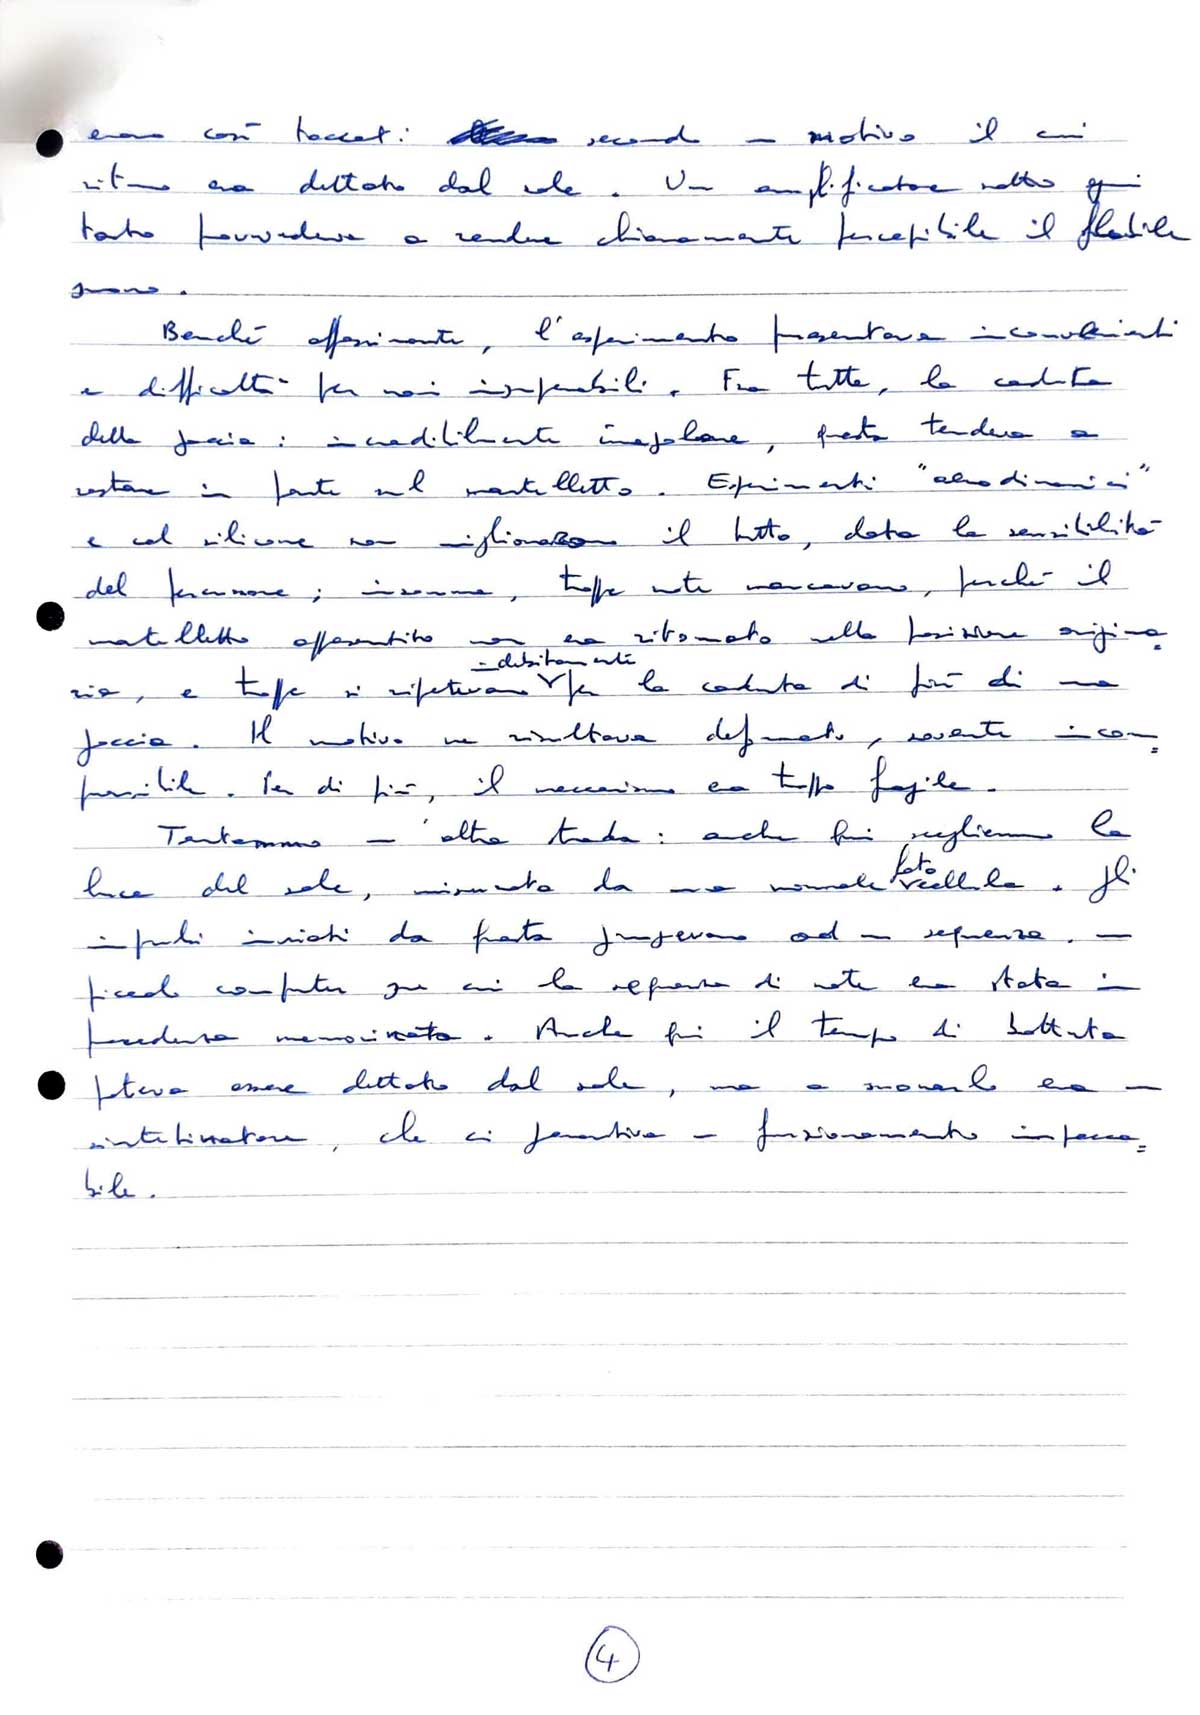 erano così toccati secondo un motivo il cui
ritmo era dettato dal sole. Un amplificatore molto spin
tato provvedeva a rendere chiaramente percepibile il flebile
suono.
Benché affascinante, l'esperimento presentava inconvenienti
e difficoltà per noi insuperabili. Fra tutte, la caduta
della goccia: incredibilmente irregolare, questa tendeva a
restare in parte sul martelletto. Esperimenti "aerodinamici"
e col silicone non migliorarono il tutto, data la sensibilità
del percussore; insomma, troppe note mancavano, perché il
martelletto appesantito non era ritornato nella posizione origina=
ria, e troppe si ripetevano indebitamente per la caduta di più di una
goccia. Il motivo ne risultava deformato, sovente incom=
prensibile. Per di più, il meccanismo era troppo fragile.
Tentammo un'altra strada: anche qui scegliemmo la
luce del sole, misurata da una normale fotocellula. Gli
impulsi inviati da questa giungevano ad un sequencer, un
piccolo computer in cui la sequenza di note era stata in
precedenza memorizzata. Anche qui il tempo di battuta
poteva essere dettato dal sole, ma a suonarlo era un
sintetizzatore, che ci garantiva un funzionamento impecca=
bile.
4